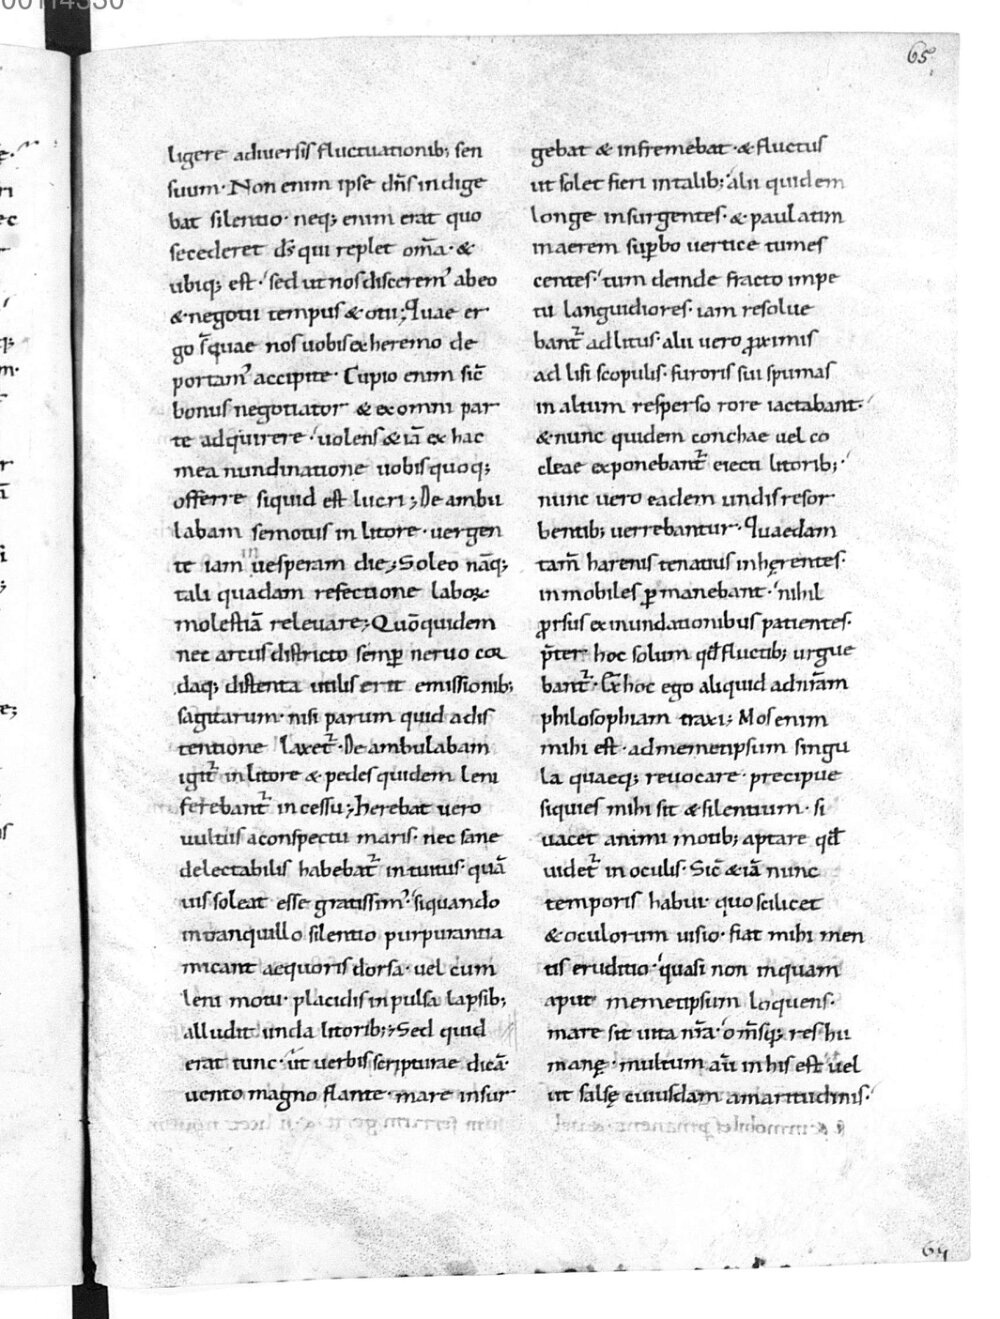 65
ligere adiuersis fluctuationib; sen
suum. Non enim ipse dn̄s indige
bat silentio. neq; enim erat quo
secederet d̄s qui replet om̄a. &
ubiq; est. sed ut nos disceremꝰ abeo
& negotii tempus & otii; Quae er
go s̄ quae nos uobis ex heremo de
portamꝰ accipite. Cupio enim sic̄
bonus negotiator & ex omni par
te adquirere. uolens & iā ex hac
mea nundinatione uobis quoq;
offerre siquid est lucri; De ambu
labam semotus in litore. uergen
te iam in uesperam die; Soleo nāq;
tali quadam refectione labore
molestiā releuare; Quō quidem
nec arcus districto semp̱ neruo cor
daq; distenta utilis erit emissionib;
sagitarum. nisi parum quid adis
tentione laxet᷑. De ambulabam
igit᷑ in litore & pedes quidem leni
ferebant᷑ incessu; herebat uero
uultus aconspectu maris. nec sane
delectabilis habebat᷑ intuitus. quā
uis soleat esse gratissimꝰ. siquando
intranquillo silentio purpurantia
micant aequoris dorsa. uel cum
leni motu. placidis inpulsa lapsib;
alludit unda litorib; Sed quid
erat tunc. ut uerbis scripturae dicā.
uento magno flante. mare insur
gebat & infremebat. & fluctus
ut solet fieri intalib; alii quidem
longe insurgentes. & paulatim
maerem sup̱bo uertice tumes
centes. tum deinde fracto impe
tu languidiores. iam resolue
bant᷑ ad litus. alii uero ꝓximis
ad lisi scopulis. furoris sui spumas
in altum resperso rore iactabant.
& nunc quidem conchae uel co
cleae exponebant᷑ eiecti litorib;
nunc uero eadem undis resor
bentib; uerrebantur. Quaedam
tam̄ harenis tenatius inhęrentes.
inmobiles ꝑmanebant. nihil
ꝓrsus ex inundationibus patientes.
p̄ter hoc solum qđ fluctib; urgue
bant᷑. Ex hoc ego aliquid adnr̄am
philosophiam traxi; Mos enim
mihi est. admemetipsum singu
la quaeq; reuocare. precipue
siquies mihi sit & silentium. si
uacet animi motib; aptare qđ
uidet᷑ in oculis. Sic̄ & iā nunc
temporis habui. quo scilicet
& oculorum uisio. fiat mihi men
tis eruditio. quasi non inquam
aput memetipsum loquens.
mare sit uita nr̄a. om̄sq; res hu
manę. multum aū in his est uel
ut salsę cuiusdam amaritudinis.